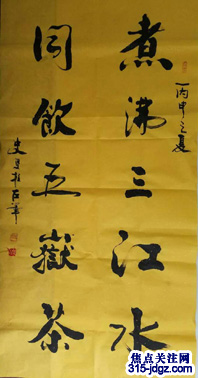 丙申之夏
煮沸三江水
同飲五嶽茶
焦点关注网
315-jdgz.com